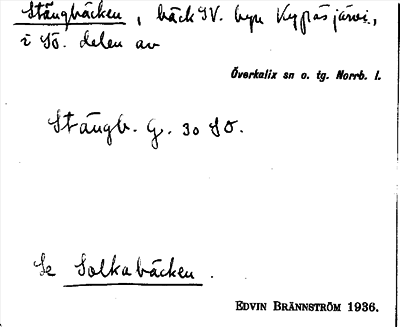 Stängbäcken, bäck SV. byn Kypasjärvi,
i SÖ. delen av
Överkalix sn o. tg. Norrb. l.
Stängb. G. 30 SO.
Se Solkabäcken.
EDVIN BRÄNNSTRÖM 1936.